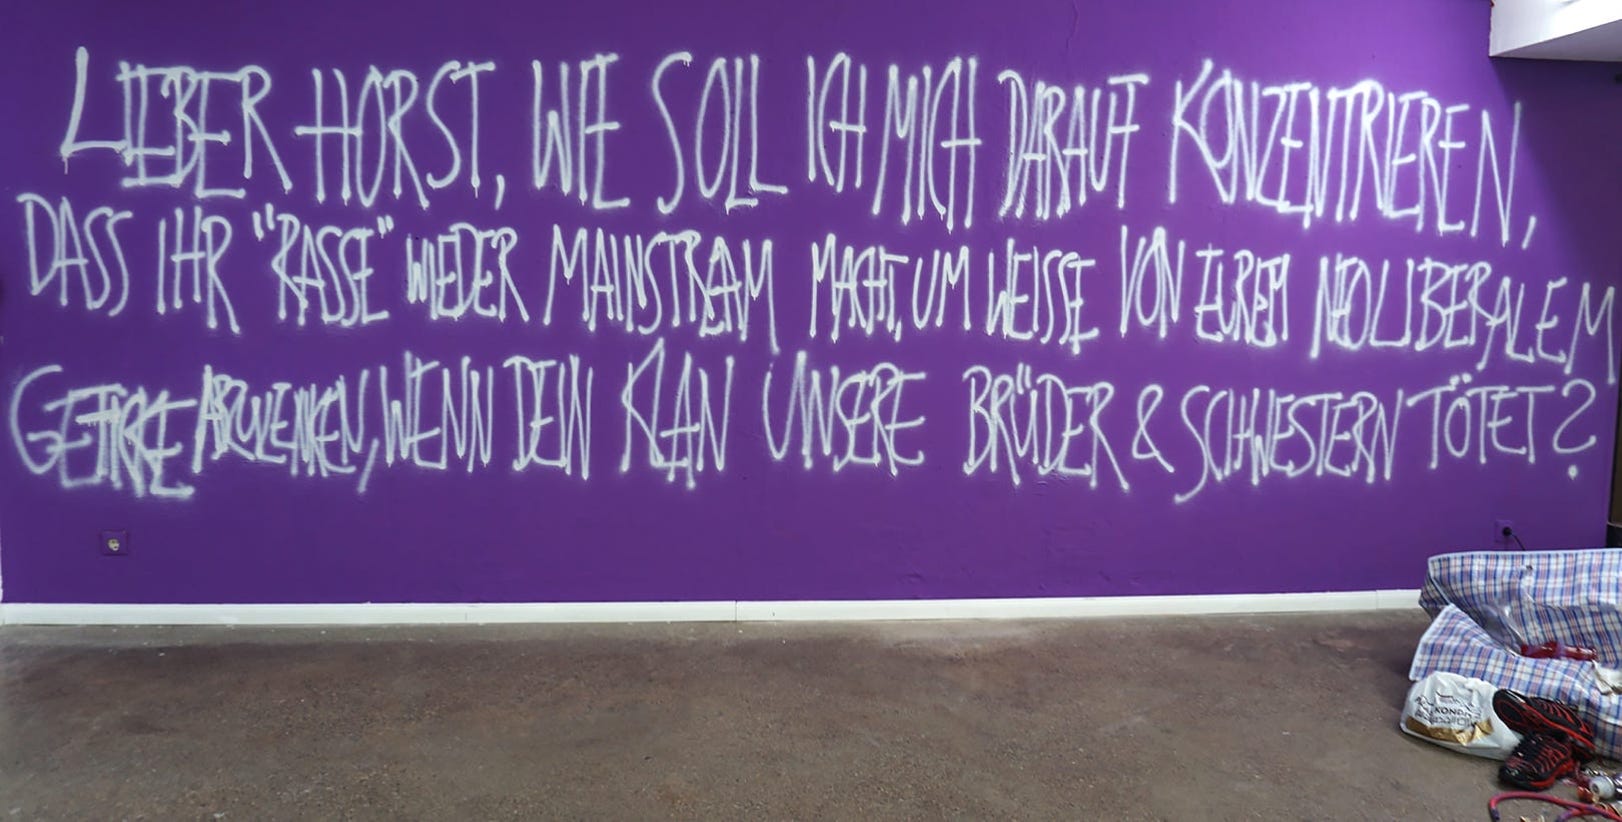 LIEBER HORST, WIE SOLL ICH MICH DARAUF KONZENTRIEREN,
DASS IHR "RASSE" WIEDER MAINSTREAM MACHT, UM WEISSE VON EUREM NEOLIBERALEM
ABZULENKEN, WENN DEIN KLAN UNSERE BRÜDER & SCHWESTERN TÖTET?
KONDI